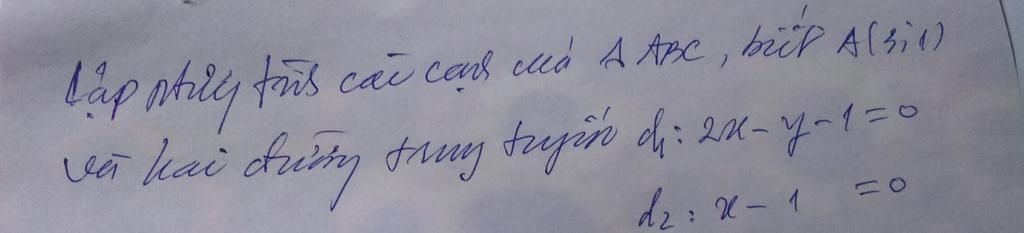 Lập phương trình các cạnh của Δ ABC, biết A(3;1)
và hai đường trung tuyến d₁: 2x - y - 1 = 0
d₂: x - 1 = 0